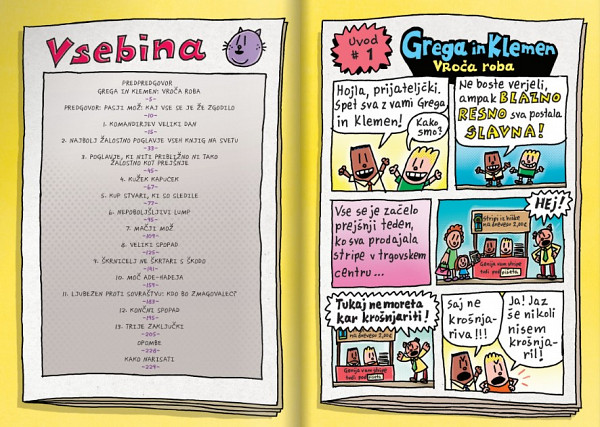 Vsebina
PREDPREDGOVOR
GREGA IN KLEMEN: VROČA ROBA
-5-
PREDGOVOR: PASJI MOŽ: KAJ VSE SE JE ŽE ZGODILO
-10-
1. KOMANDIRJEV VELIKI DAN
-15-
2. NAJBOLJ ŽALOSTNO POGLAVJE VSEH KNJIG NA SVETU
-33-
3. POGLAVJE, KI NITI PRIBLIŽNO NI TAKO
ŽALOSTNO KOT PREJŠNJE
-45-
4. KUŽEK KAPUČEK
-67-
5. KUP STVARI, KI SO SLEDILE
-77-
6. NEPOBOLJŠLJIVI LUMP
-95-
7. MAČJI MOŽ
-109-
8. VELIKI SPOPAD
-125-
9. ŠKRNICELJ NE ŠKRTARI S ŠKODO
-141-
10. MOČ ADE-HADEJA
-159-
11. LJUBEZEN PROTI SOVRAŠTVU: KDO BO ZMAGOVALEC?
-183-
12. KONČNI SPOPAD
-195-
13. TRIJE ZAKLJUČKI
-205-
OPOMBE
-228-
KAKO NARISATI
-229-
Uvod
# 1
Grega in Klemen
VROČA ROBA
Hojla, prijateljčki.
Spet sva z vami Grega
in Klemen!
Kako
smo?
Ne boste verjeli,
ampak BLAZNO
RESNO sva postala
SLAVNA!
Vse se je začelo
prejšnji teden,
ko sva prodajala
stripe v trgovskem
centru...
Hej!
Stripi iz hiške
na drevesu 2,00€
Genija vam stripe
tudi podpišeta
Tukaj ne moreta
kar krošnjariti!
na drevesu 2,00€
Genija vam stripe
tudi podpišeta
Saj ne
krošnja-
riva!!!
Ja! Jaz
še nikoli
nisem
krošnja-
ril!